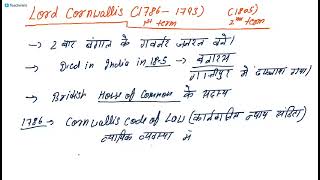 Teachmint
Lord Cornwallis (1786-1793) (1805)
1st term 2nd term
→ 2 बार बंगाल के गवर्नर जनरल बने।
→ Died in India in 1805 → बनारस
गाजीपुर में दफनाया गया)
→ British House of Common के सदस्य
1786 → Cornwallis Code of Law (कार्नवालिस न्याय संहिता)
न्यायिक व्यवस्था में